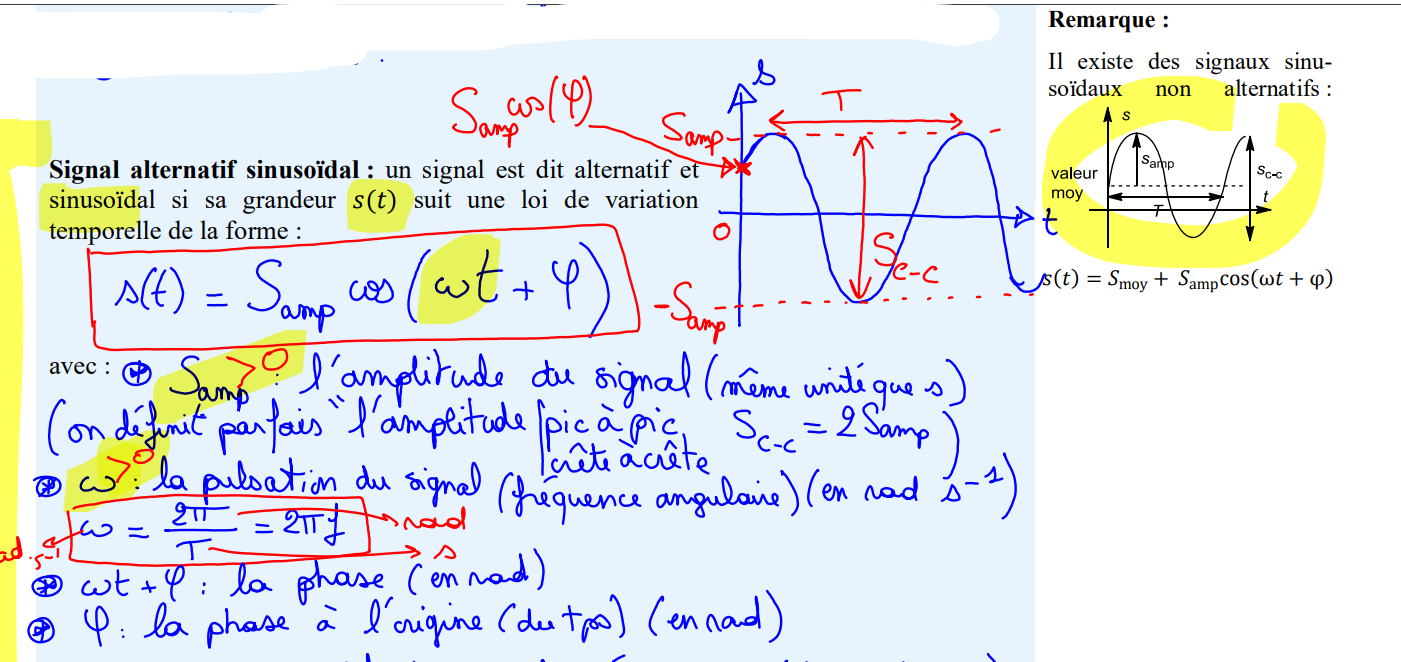 Remarque :
Il existe des signaux sinu-
soïdaux non alternatifs :
s
S_amp
S_c-c
valeur
moy
T
t
s(t) = S_moy + S_amp cos(ωt + φ)
S_amp cos(φ)
s
T
S_amp
O
t
S_c-c
-S_amp
Signal alternatif sinusoïdal : un signal est dit alternatif et
sinusoïdal si sa grandeur s(t) suit une loi de variation
temporelle de la forme :
s(t) = S_amp cos (ωt + φ)
avec : S_amp > 0 : l'amplitude du signal (même unité que s)
(on définit parfois "l'amplitude pic à pic, S_c-c = 2 S_amp)
crête à crête
ω > 0 : la pulsation du signal (fréquence angulaire) (en rad s^-1)
ω = 2π/T = 2πf
rad
s
ad.s^-1
ωt + φ : la phase (en rad)
φ : la phase à l'origine (du tps) (en rad)